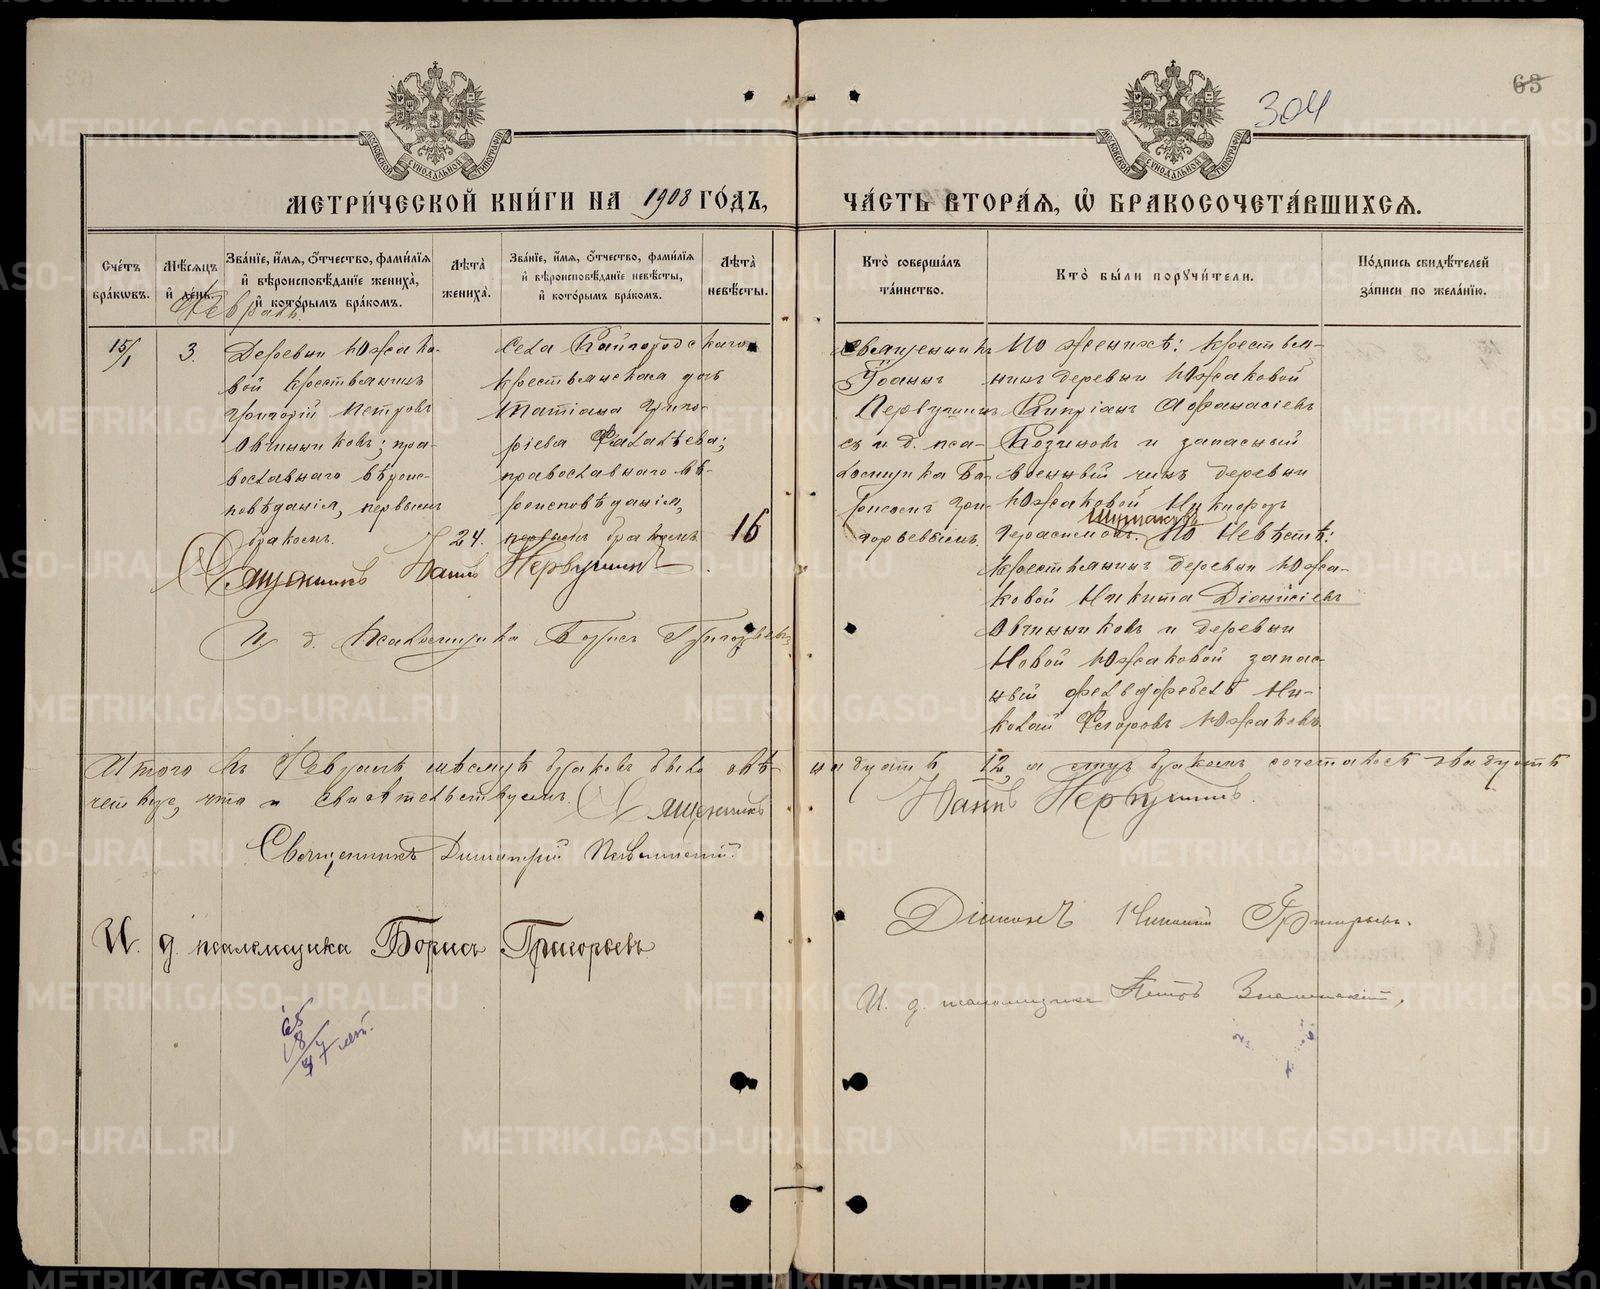 63
304
МОСКОВСКОЙ СѴНОДАЛЬНОЙ ТИПОГРАФІИ
МОСКОВСКОЙ СѴНОДАЛЬНОЙ ТИПОГРАФІИ
МЕТРИ́ЧЕСКОЙ КНИ́ГИ НА 1908 ГО́ДЪ,
ЧА́СТЬ ВТОРА́Я, Ѡ҆ БРАКОСОЧЕТА́ВШИХСЯ.
Сче́тъ бра́ковъ.
Мѣ́сяцъ и҆ де́нь.
Зва́нїе, и҆́мя, о҆́тчество, фами́лїя и҆ вѣроисповѣ́данїе жениха̀, и҆ кото́рымъ бра́комъ.
Лѣ́та жениха̀.
Зва́нїе, и҆́мя, о҆́тчество, фами́лїя и҆ вѣроисповѣ́данїе невѣ́сты, и҆ кото́рымъ бра́комъ.
Лѣ́та невѣ́сты.
Кто̀ соверша́лъ та́инство.
Кто̀ бы́ли поручи́тели.
По́дпись свидѣ́телей за́писи по жела́нїю.
Февраль.
15/1
3.
Деревни Южако-
вой крестьянинъ
Григорій Петровъ
Овчинниковъ; пра-
вославнаго вѣроис-
повѣданія, первымъ
бракомъ.
24.
Села Кайгородскаго
крестьянская дочь
Татіана Григо-
ріева Фалалѣева;
православнаго вѣ-
роисповѣданія,
первымъ бракомъ
16
Священникъ
Іоаннъ
Первушинъ
съ и. д. пса-
ломщика Бо-
рисомъ Гри-
горьевымъ.
По женихѣ: крестья-
нинъ деревни Южаковой
Кипріанъ Аѳанасіевъ
Козиновъ и запасный
военный чинъ деревни
Южаковой Никифоръ
Герасимовъ. По невѣстѣ:
крестьянинъ деревни Южа-
ковой Никита Діонисіевъ
Овчинниковъ и деревни
Новой Южаковой запас-
ный фельдфебель Ни-
колай Ѳедоровъ Южаковъ
Священникъ Іоаннъ Первушинъ.
И. д. псаломщика Борисъ Григорьевъ
Итого въ Февралѣ мѣсяцѣ браковъ было двѣ-
надцать 12, а симъ бракомъ сочеталось двадцать
четверо, что и свидѣтельствуемъ. Священникъ
Іоаннъ Первушинъ.
Священникъ Димитрій
Діаконъ Николай Григорьевъ.
И. д. псаломщика Борисъ Григорьевъ
И. д. псаломщика Петръ Знаменскій,
65
18
47 лет.
METRIKI.GASO-URAL.RU